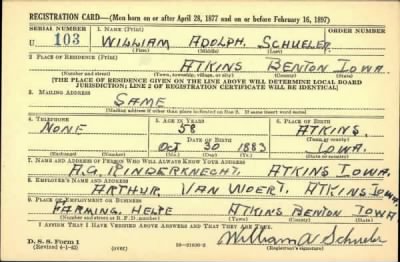 REGISTRATION CARD—(Men born on or after April 28, 1877 and on or before February 16, 1897)
SERIAL NUMBER 1. NAME (Print) ORDER NUMBER
U 103 WILLIAM ADOLPH SCHUELER
(First) (Middle) (Last)
2. PLACE OF RESIDENCE (Print)
ATKINS BENTON IOWA
(Number and street) (Town, township, village, or city) (County) (State)
[THE PLACE OF RESIDENCE GIVEN ON THE LINE ABOVE WILL DETERMINE LOCAL BOARD
JURISDICTION; LINE 2 OF REGISTRATION CERTIFICATE WILL BE IDENTICAL]
3. MAILING ADDRESS
SAME
[Mailing address if other than place indicated on line 2. If same insert word same]
4. TELEPHONE 5. AGE IN YEARS 6. PLACE OF BIRTH
NONE 58 ATKINS
DATE OF BIRTH (Town or county)
OCT 30 1883 IOWA
(Exchange) (Number) (Mo.) (Day) (Yr.) (State or country)
7. NAME AND ADDRESS OF PERSON WHO WILL ALWAYS KNOW YOUR ADDRESS
A.G. RINDERKNECHT ATKINS IOWA
8. EMPLOYER'S NAME AND ADDRESS
ARTHUR VAN WOERT, ATKINS IOWA
9. PLACE OF EMPLOYMENT OR BUSINESS
FARMING HELPE ATKINS BENTON IOWA
(Number and street or R. F. D. number) (Town) (County) (State)
I AFFIRM THAT I HAVE VERIFIED ABOVE ANSWERS AND THAT THEY ARE TRUE.
D. S. S. Form 1 William A Schueler
(Revised 4-1-42) (over) (Registrant's signature)